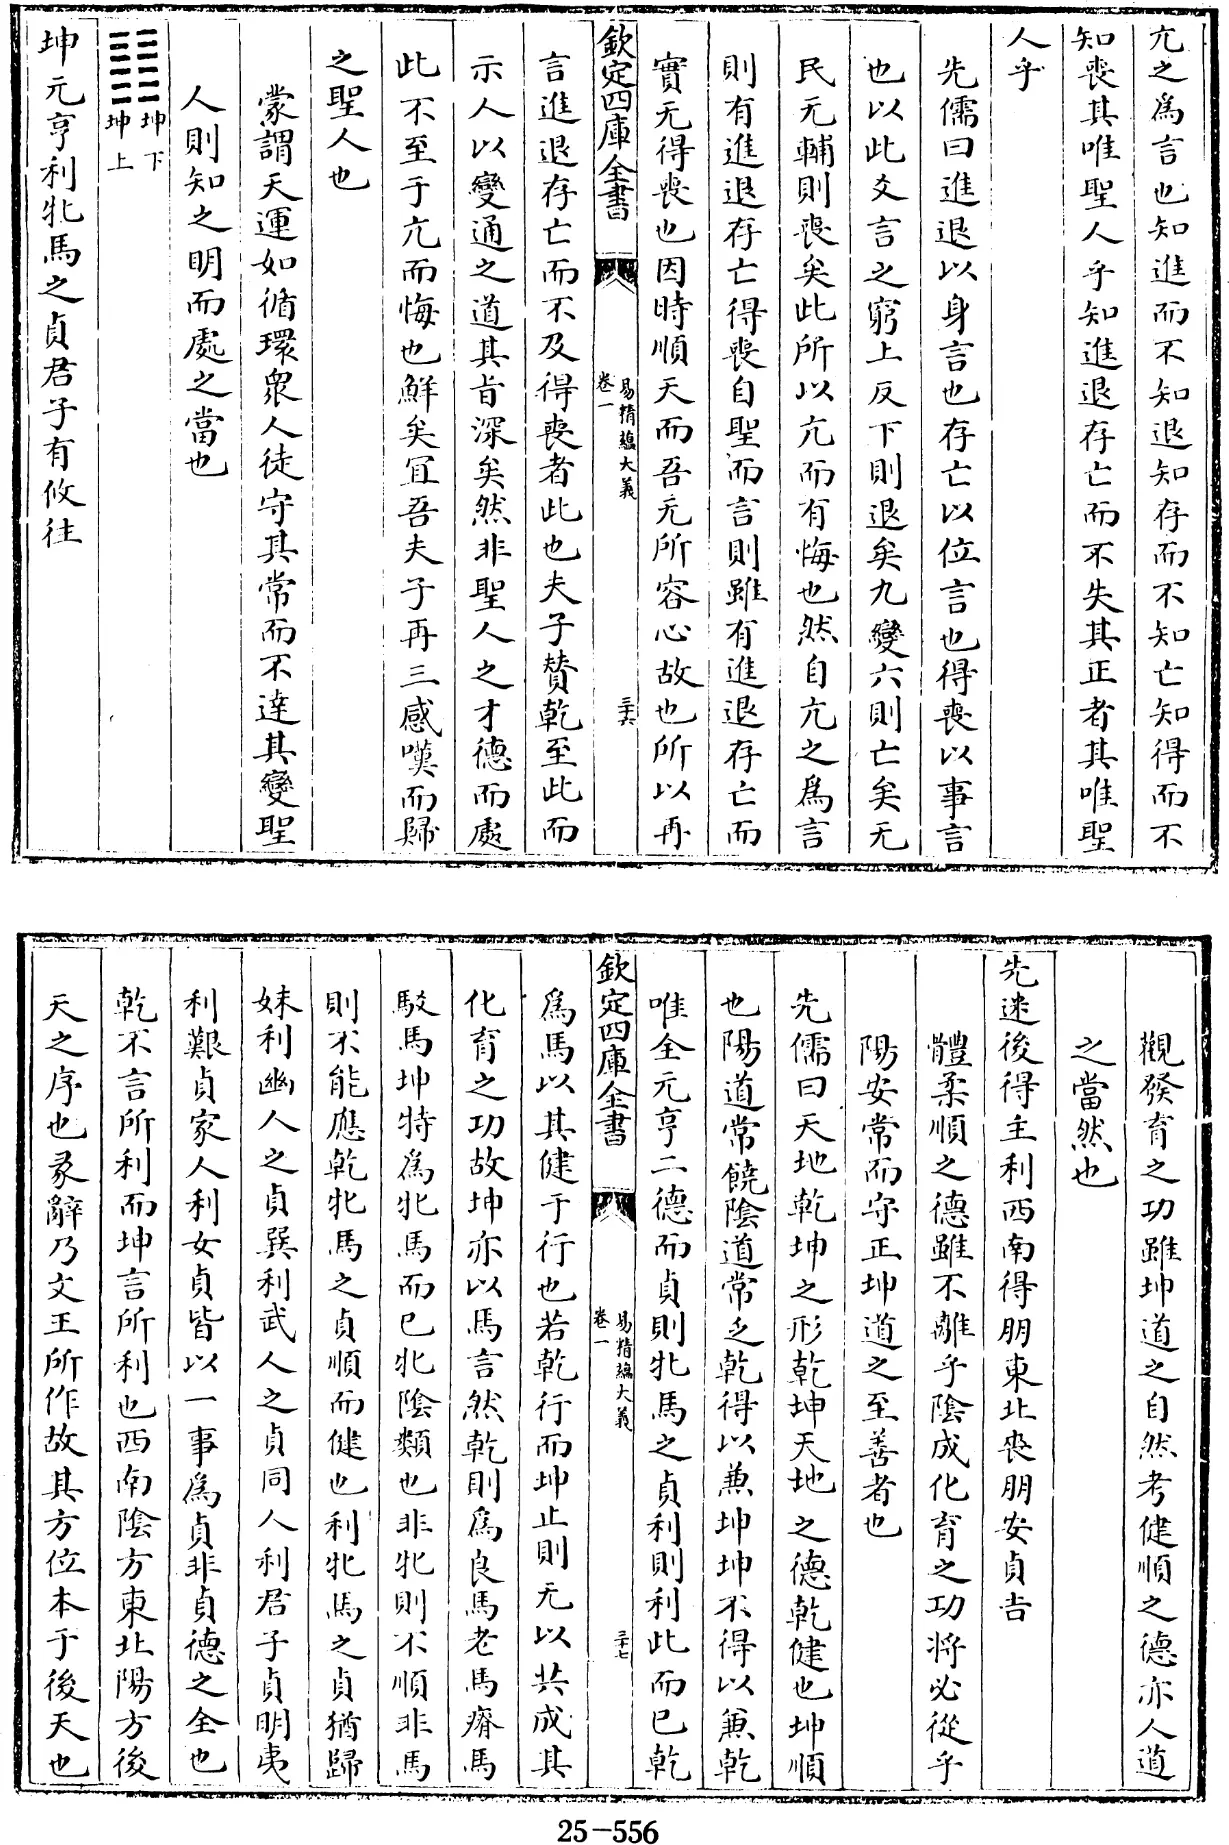 亢之為言也知進而不知退知存而不知亡知得而不
知喪其唯聖人乎知進退存亡而不失其正者其唯聖
人乎
先儒曰進退以身言也存亡以位言也得喪以事言
也以此爻言之窮上反下則退矣九變六則亡矣无
民无輔則喪矣此所以亢而有悔也然自亢之為言
則有進退存亡得喪自聖而言則雖有進退存亡而
實无得喪也因時順天而吾无所容心故也所以再
欽定四庫全書
易精蘊大義
卷一
三十六
言進退存亡而不及得喪者此也夫子贊乾至此而
示人以變通之道其旨深矣然非聖人之才德而處
此不至于亢而悔也鮮矣宜吾夫子再三感嘆而歸
之聖人也
蒙謂天運如循環衆人徒守其常而不達其變聖
人則知之明而處之當也
䷁坤下
坤上
坤元亨利牝馬之貞君子有攸往
觀發育之功雖坤道之自然考健順之德亦人道
之當然也
先迷後得主利西南得朋東北喪朋安貞吉
體柔順之德雖不離乎陰成化育之功將必從乎
陽安常而守正坤道之至善者也
先儒曰天地乾坤之形乾坤天地之德乾健也坤順
也陽道常饒陰道常乏乾得以兼坤坤不得以兼乾
唯全元亨二德而貞則牝馬之貞利則利此而已乾
欽定四庫全書
易精蘊大義
卷一
三十七
為馬以其健于行也若乾行而坤止則无以共成其
化育之功故坤亦以馬言然乾則為良馬老馬瘠馬
駁馬坤特為牝馬而已牝陰類也非牝則不順非馬
則不能應乾牝馬之貞順而健也利牝馬之貞猶歸
妹利幽人之貞巽利武人之貞同人利君子貞明夷
利艱貞家人利女貞皆以一事為貞非貞德之全也
乾不言所利而坤言所利也西南陰方東北陽方後
天之序也彖辭乃文王所作故其方位本于後天也
25-556